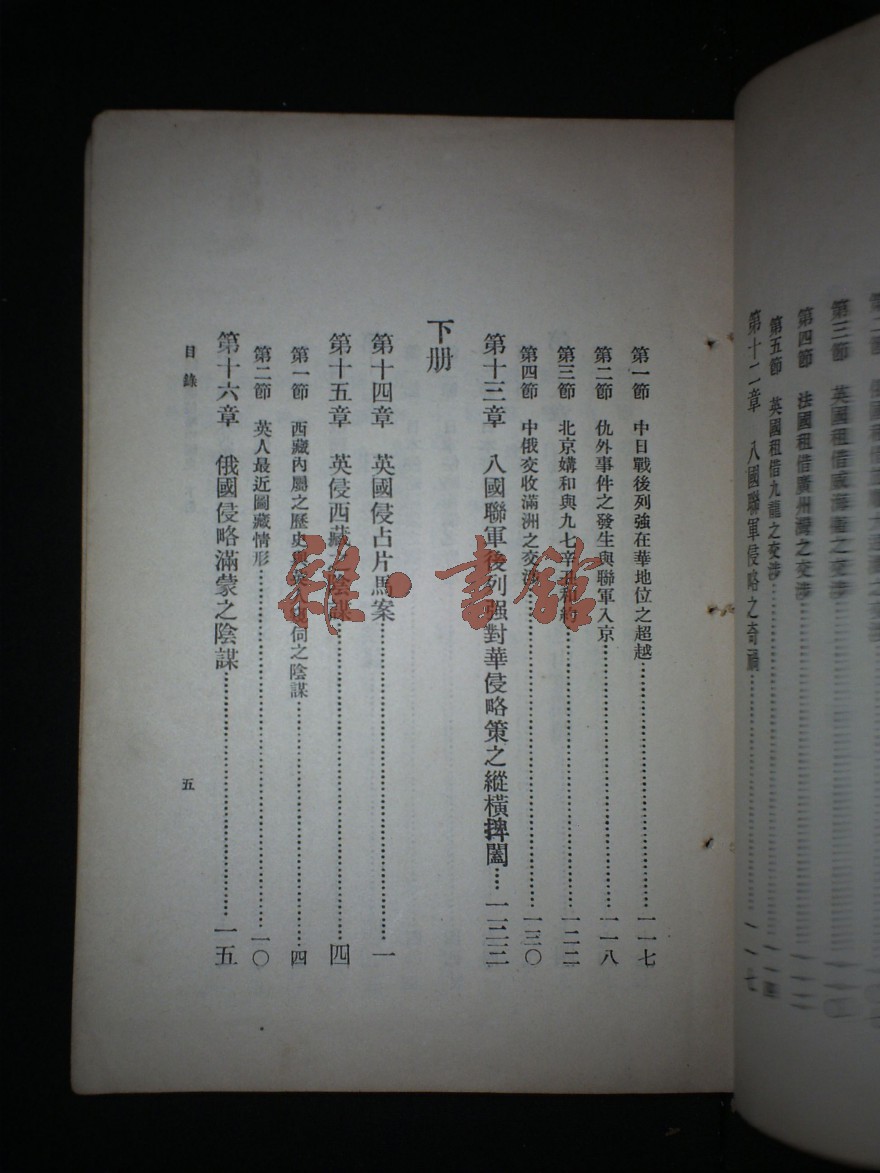 第三節 英國租借威海衛之交涉
第四節 法國租借廣州灣之交涉
第五節 英國租借九龍之交涉…… 一一四
第十二章 八國聯軍侵略之奇禍…… 一一七
第一節 中日戰後列強在華地位之超越…… 一一七
第二節 仇外事件之發生與聯軍入京…… 一一八
第三節 北京媾和與九七辛丑和約…… 一二二
第四節 中俄交收滿洲之交涉…… 一三〇
第十三章 八國聯軍後列强對華侵略策之縱橫捭闔…… 一三三
下册
第十四章 英國侵占片馬案…… 一
第十五章 英侵西藏之陰謀…… 四
第一節 西藏內屬之歷史與英人窺伺之陰謀…… 四
第二節 英人最近圖藏情形…… 一〇
第十六章 俄國侵略滿蒙之陰謀…… 一五
目錄
五
雜·書館